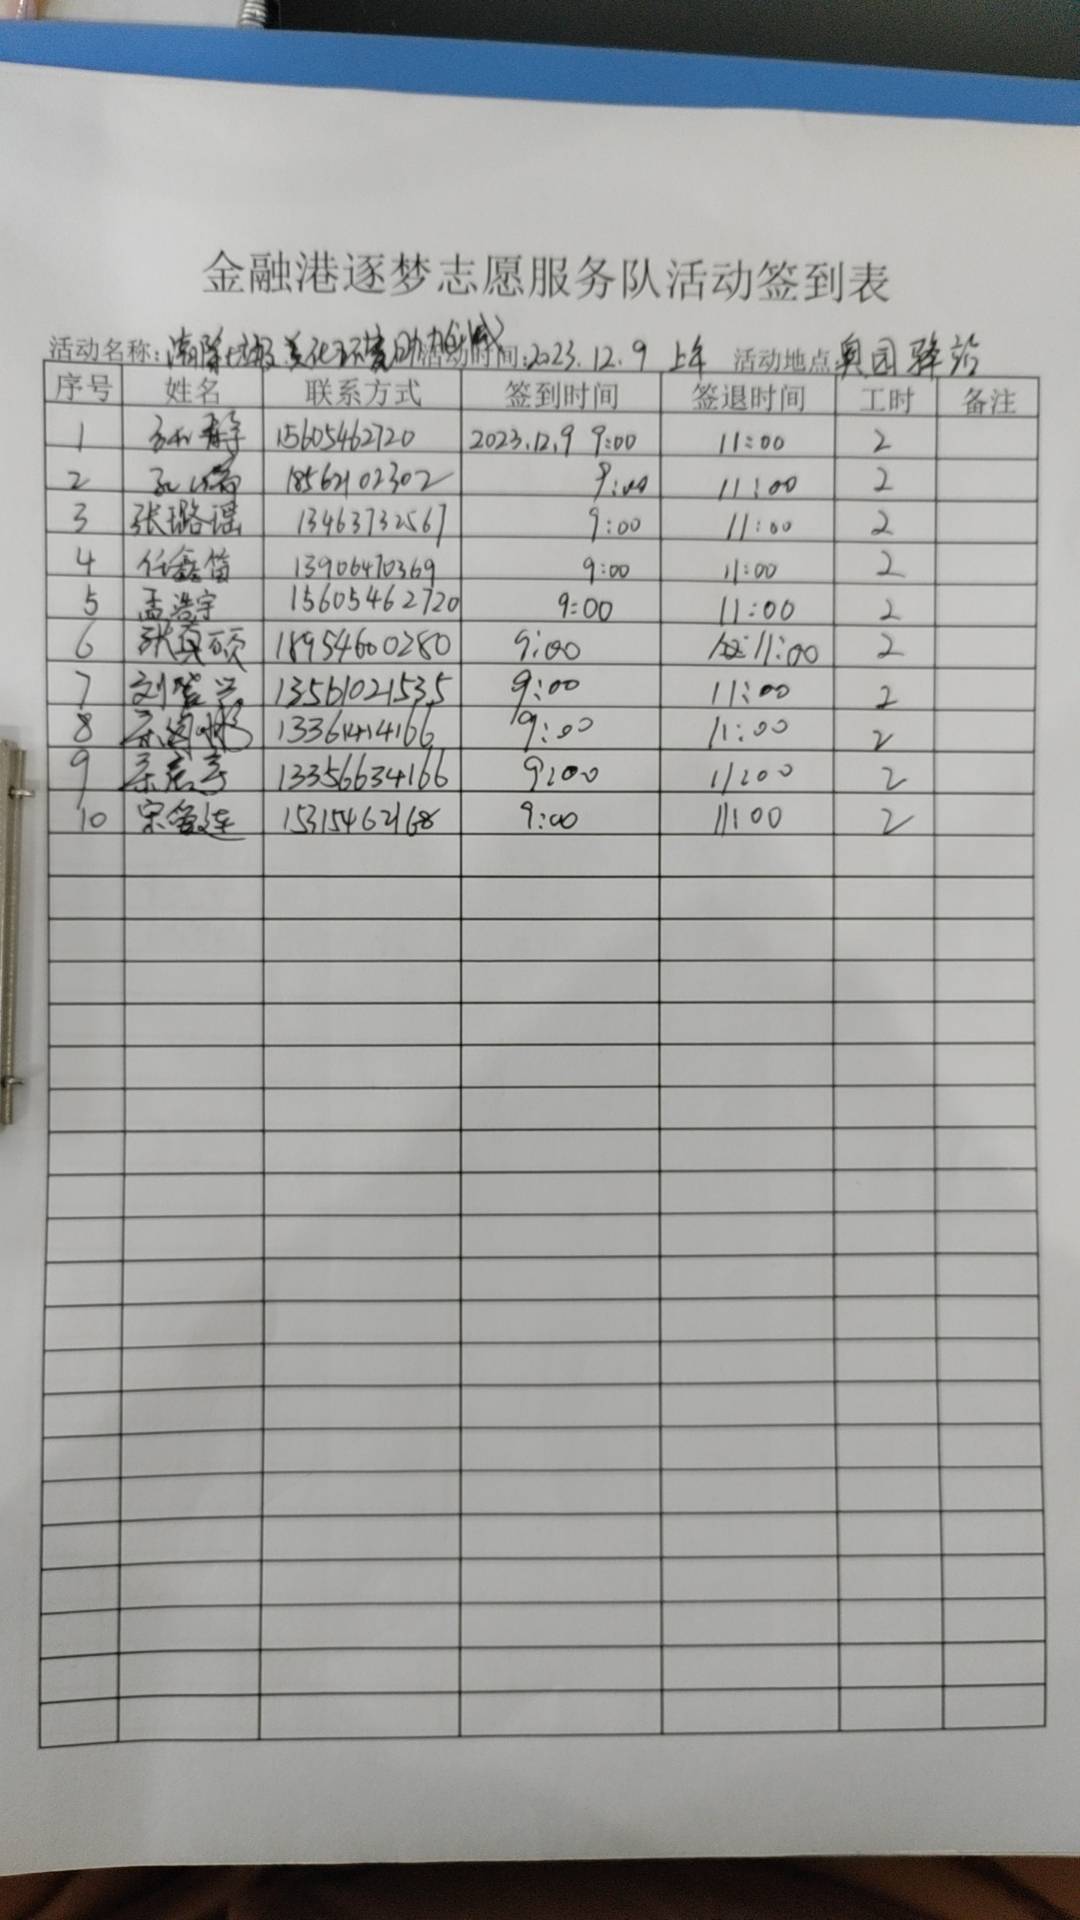 金融港逐梦志愿服务队活动签到表
活动名称:清除垃圾美化环境助力创城 活动时间:2023.12.9 上午 活动地点:奥园驿站
序号 姓名 联系方式 签到时间 签退时间 工时 备注
1 15605462720 2023.12.9 9:00 11:00 2
2 18562102302 9:00 11:00 2
3 张璐瑶 13463732567 9:00 11:00 2
4 任鑫笛 13906470369 9:00 11:00 2
5 孟浩宇 15605462720 9:00 11:00 2
6 张真硕 18954600280 9:00 11:00 2
7 13561021535 9:00 11:00 2
8 13361414166 9:00 11:00 2
9 13356634166 9:00 11:00 2
10 宋爱莲 15315462168 9:00 11:00 2